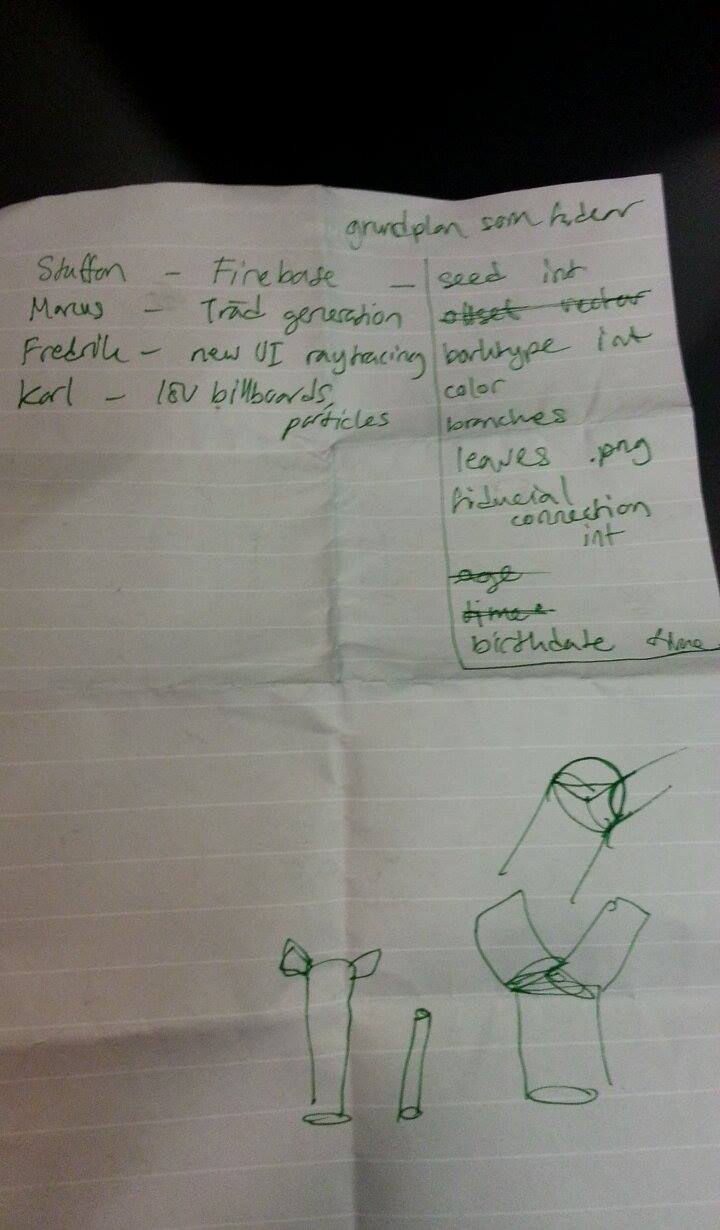 grundplan som
Stuffon - Firebase -
Marcus - Träd generation
Fredrik - new UI raytracing
Karl - billboards,
particles
seed int
offset vector
barktype int
color
branches
leaves .png
fiducial
connection
int
age
time
birthdate time